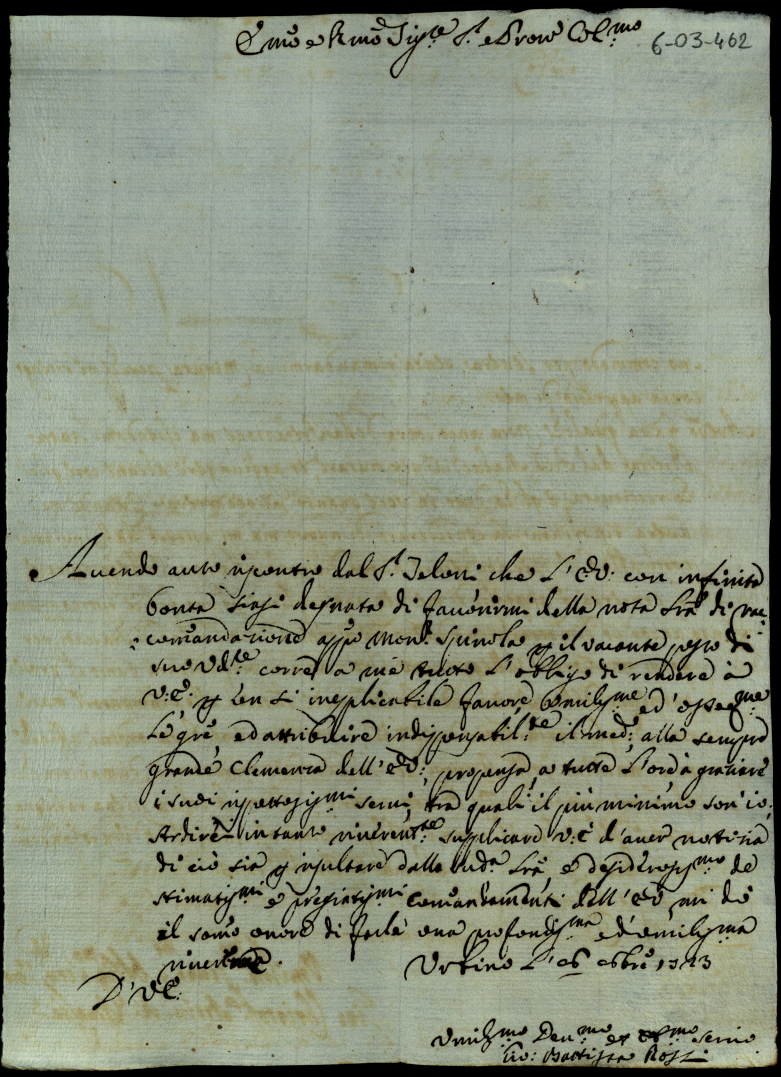 Emo e Rmo Sigre Sr e Prone Colmo
6-03-462
Auendo auto riscontro dal Sr Teloni che l'E.V. con infinita
bontà siasi degnata di fauorirmi della nota Lra di rac
comandazione appo Monr Spinola p il vacante posto di
suo Udte corre a me tutto l'obbligo di rendere à
V.E. p un sì inesplicabile fauore umilisme ed osseqme
le gre ed attribuire indispensabilte il medo alla sempre
grande Clemenza dell'E.V. propensa a tutte l'ore à graziare
i suoi rispettosismi serui, trà quali il più minimo son'io.
Ardirei in tanto riuerente supplicare V.E. d'auer notizia
di ciò sia p risultare dalla suda Lra, e desiderosismo de
stimatismi e pregiatismi comandamenti dell'E.V. mi dò
il somo onore di farle una profondisma ed umilisma
riuerenza.
Urbino l' 26 1713
D'V.E.
Umilismo Deumo et seruo
Gio: Battista Rossi